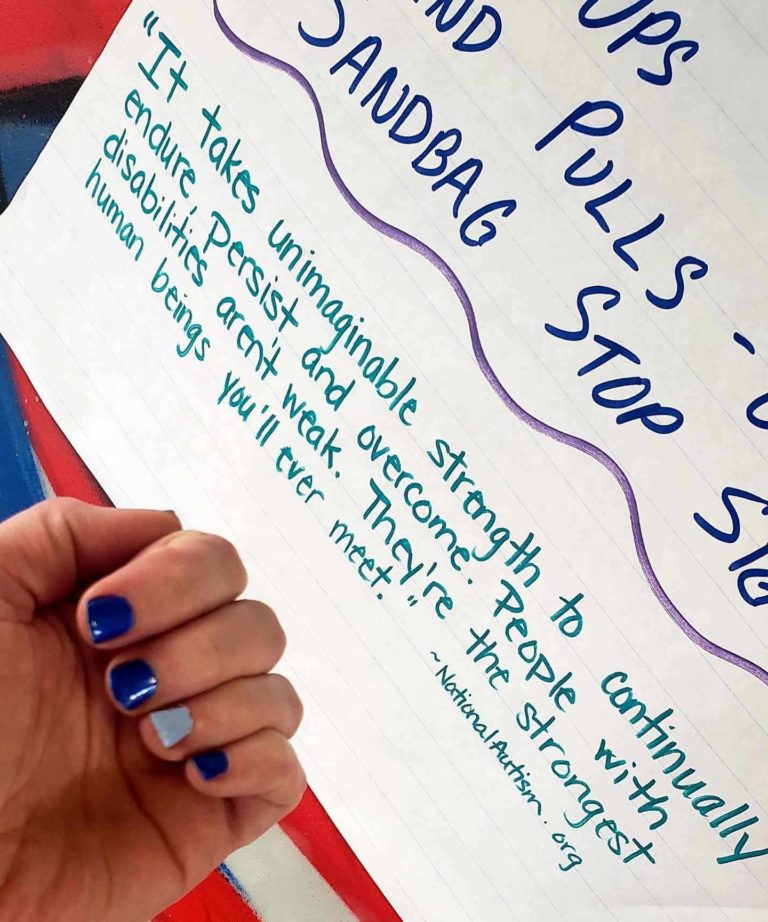 UPS
ND PULLS -
SANDBAG STOP SIG
"It takes unimaginable strength to continually
endure, persist and overcome. People with
disabilities aren't weak. They're the strongest
human beings you'll ever meet."
~NationalAutism.org